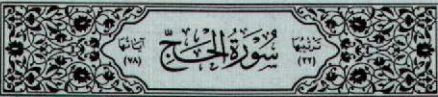 ترتيبها
(٢٢)
سُورَةُ الْحَجِّ
آياتها
(٧٨)